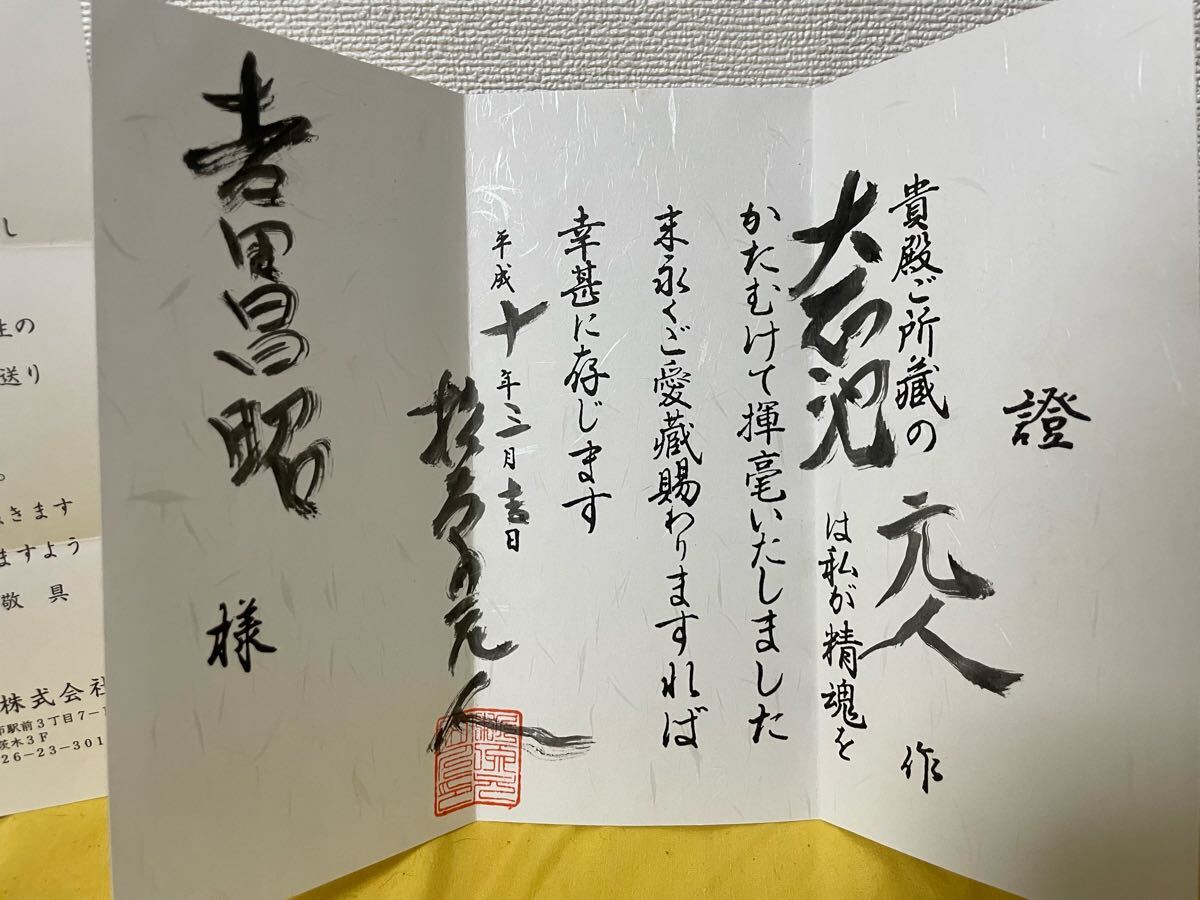 證
貴殿ご所蔵の
元人 作
は私が精魂を
かたむけて揮毫いたしました
末永くご愛蔵賜わりますれば
幸甚に存じます
平成十年三月吉日
元人
吉田昌昭 様
し
生の
送り
。
きます
ますよう
敬具
株式会社
市駅前3丁目7-
茨木3F
26-23-301